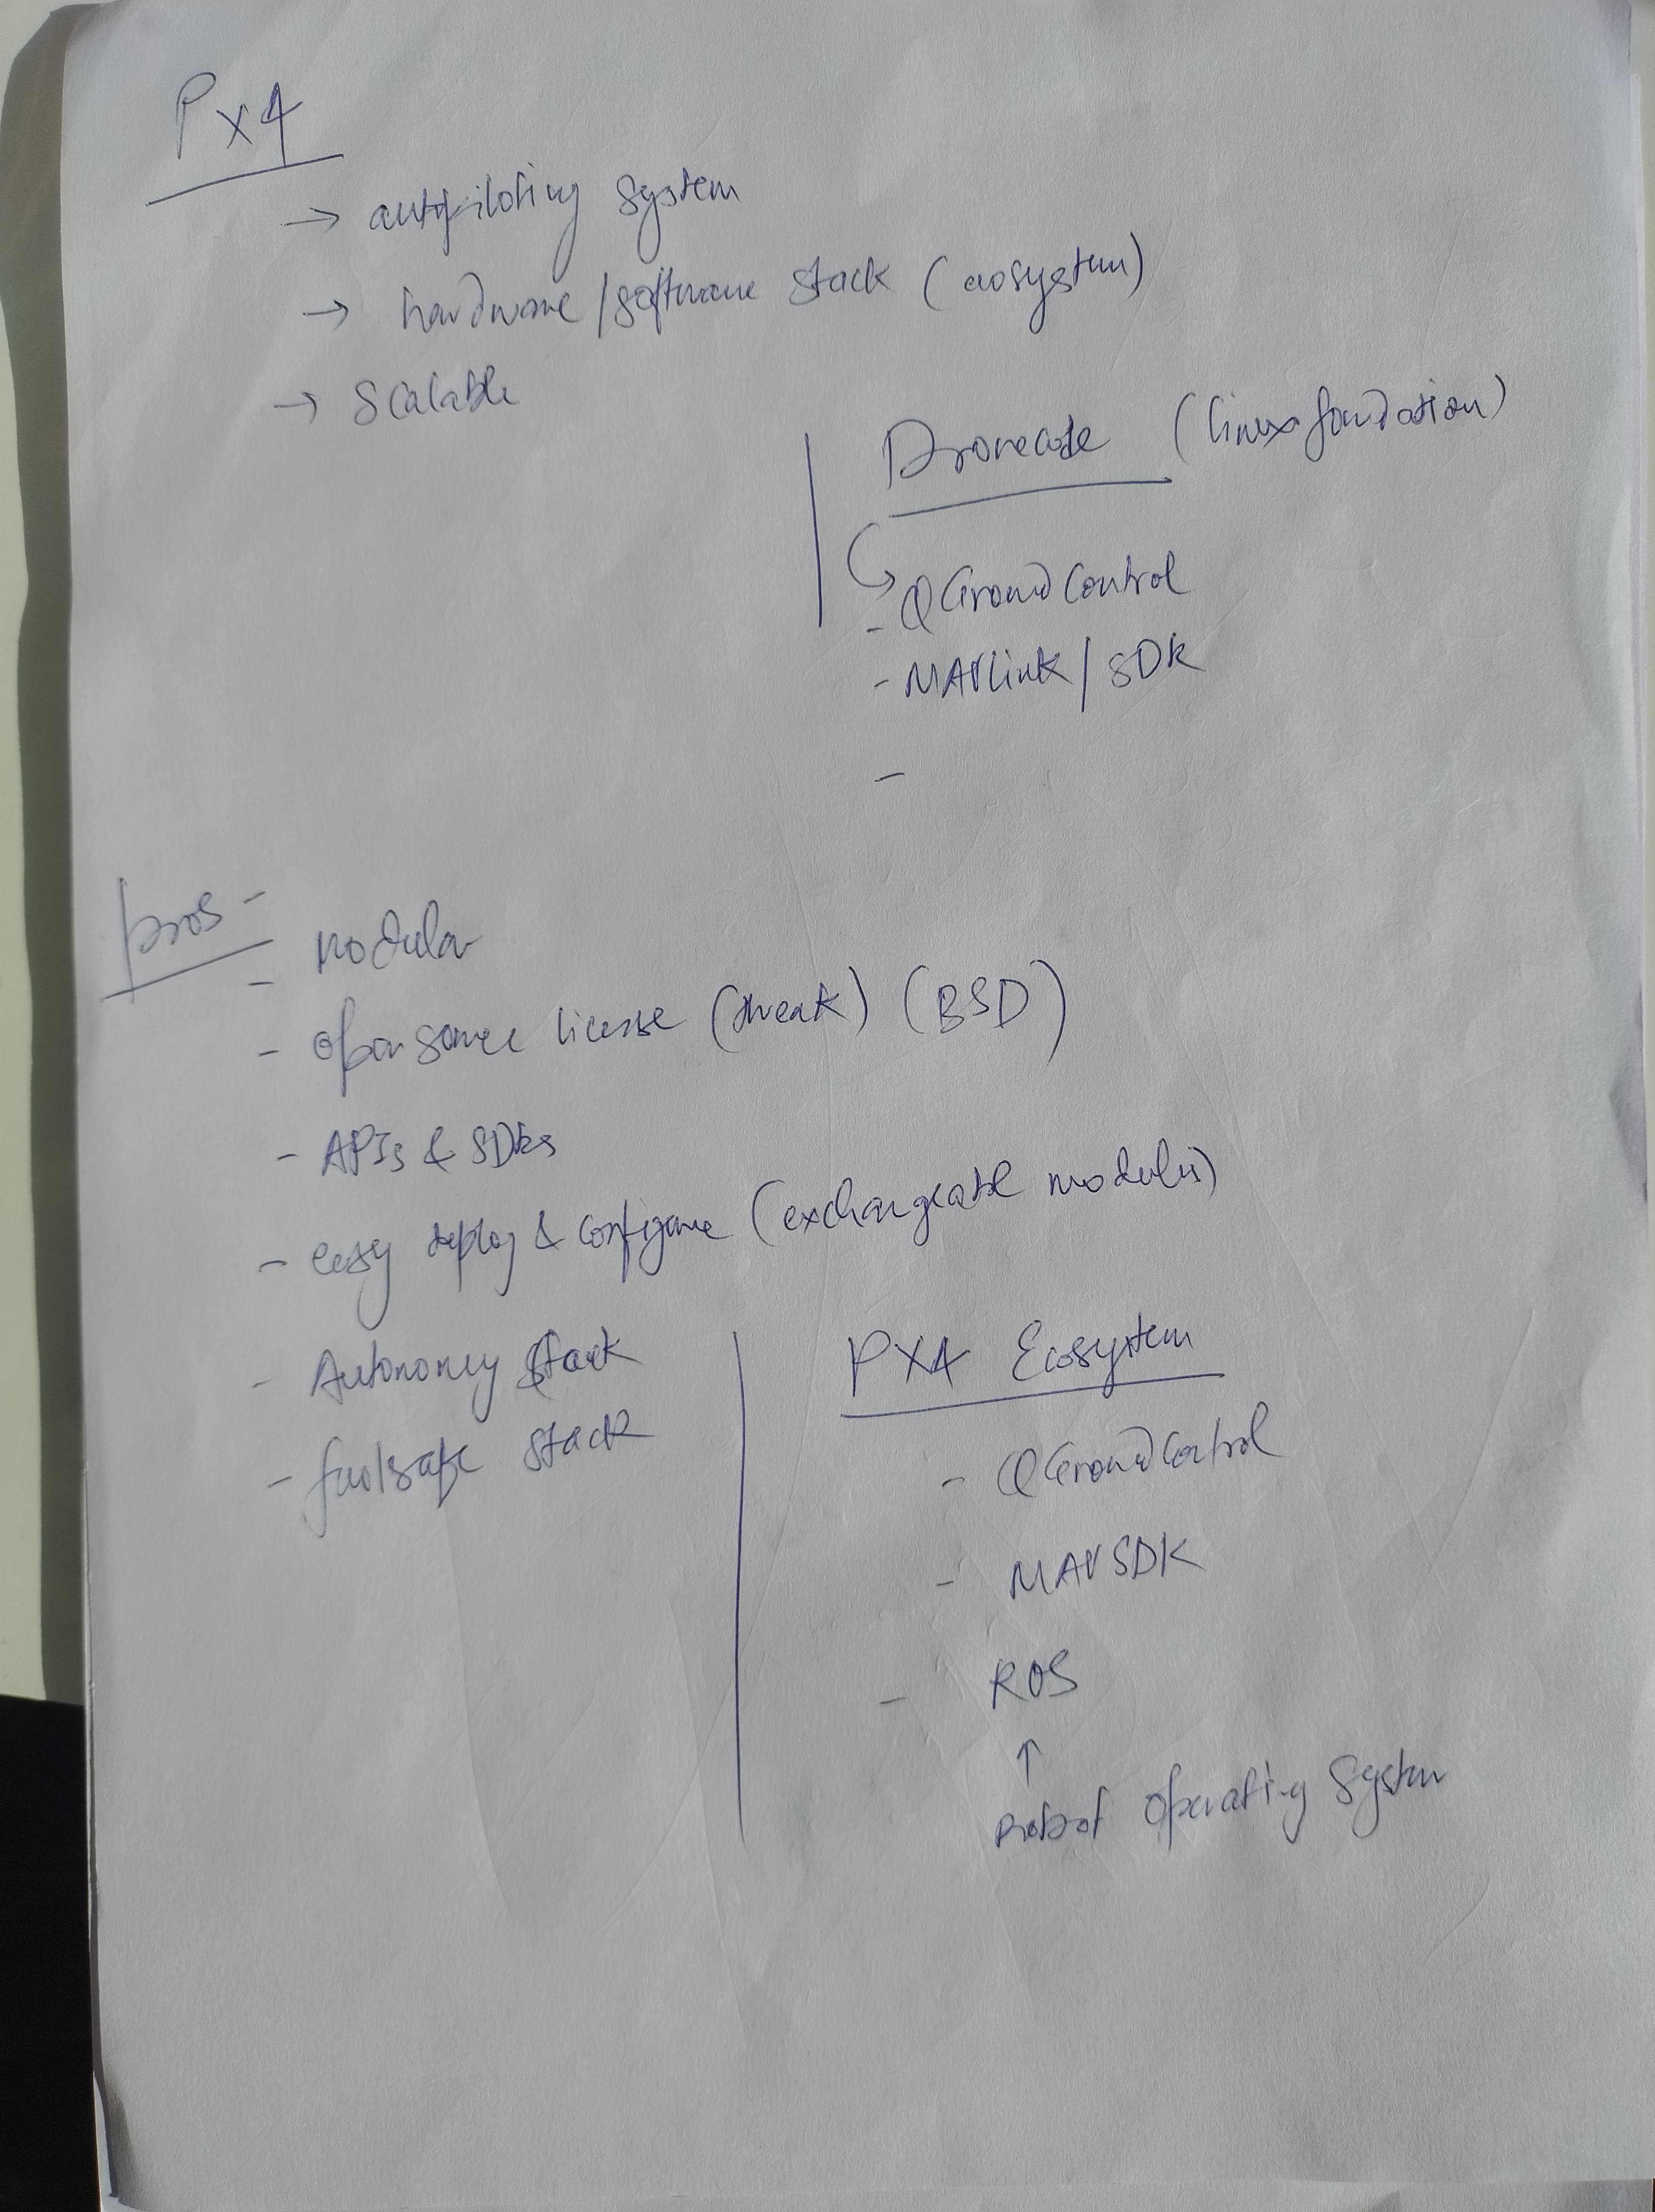 Px4
→ autopiloting system
→ hardware/software stack (ecosystem)
→ Scalable
Dronecode (linux foundation)
- QGroundControl
- MAVLink / SDK
-
pros -
- modular
- open source license (tweak) (BSD)
- APIs & SDKs
- easy deploy & configure (exchangeable modules)
- Autonomy stack
- failsafe stack
PX4 Ecosystem
- QGroundControl
- MAVSDK
- ROS
↑
Robot Operating System